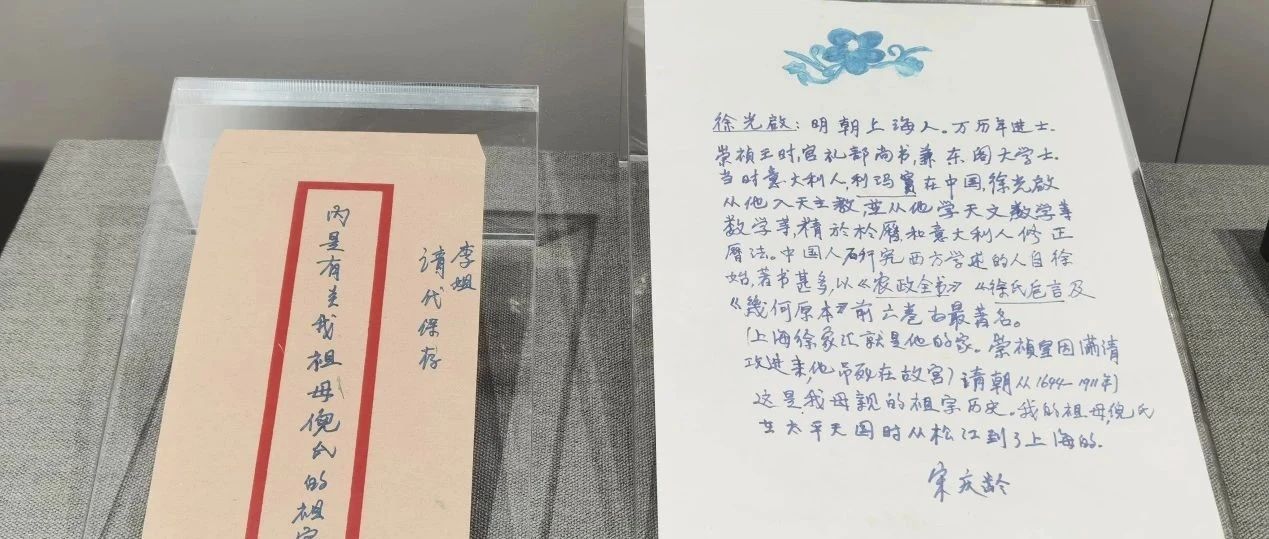 李姐
请代保存
内是有关我祖母倪氏的祖宗
徐光啟：明朝上海人。万历年进士.
崇祯王时,官礼部尚书,兼东阁大学士.
当时意大利人,利玛竇在中国,徐光啟
从他入天主教,並从他学天文数学等
数学等,精於曆,和意大利人修正
曆法。中国人研究西方学述的人自徐
始,著书甚多,以《农政全书》《徐氏卮言及
《幾何原本》前六卷古最著名。
(上海徐家汇就是他的家。崇祯皇因满清
攻进来,他吊死在故宫)清朝从1644—1911年)
这是我母親的祖宗历史。我的祖母,倪氏
在太平天国时从松江到了上海的.
宋庆龄